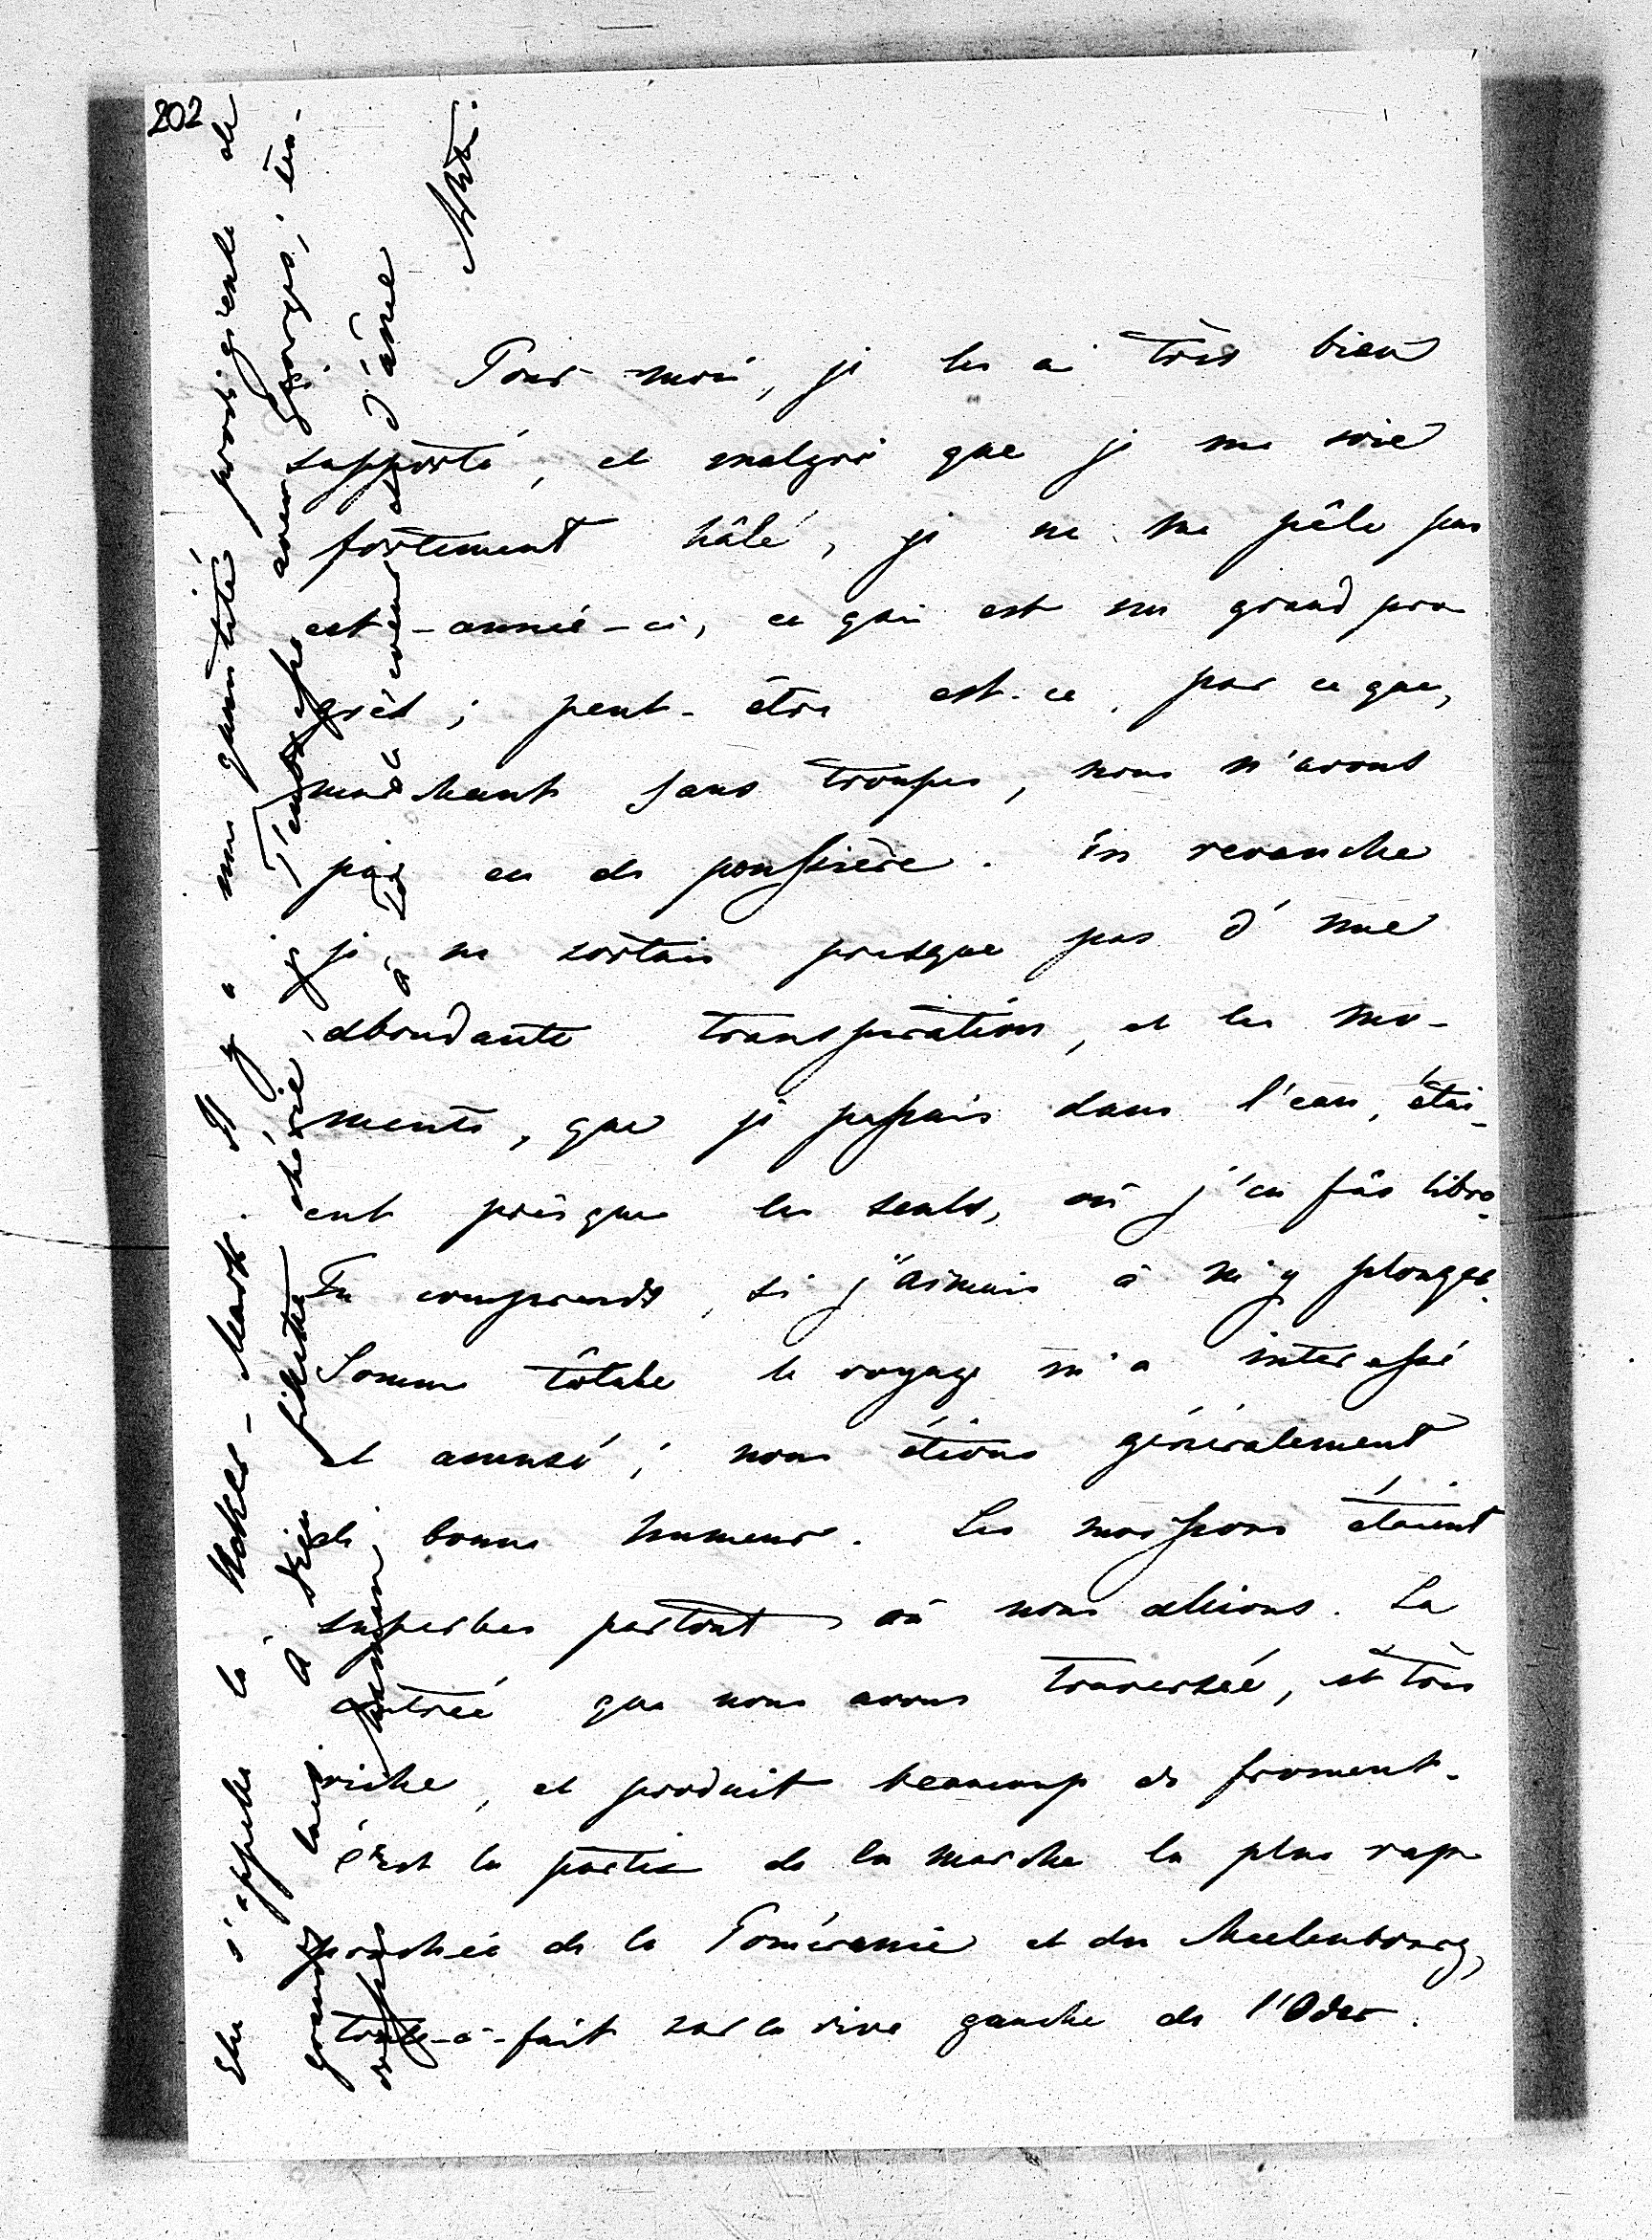 202
Pour moi, je les ai très bien
supporté, et malgré que je me soie
fortement hâlé, je ne me pêle pas
cet-année-ci, ce qui est un grand pro
grès; peut-être est-ce par ce que,
marchant sans troupes, nous n'avons
pas eu de poussière. En revanche
je ne sortais presque pas d'une
abondante transpiration, et les mo-
ments, que je passais dans l'eau, étai-
ent presque les seuls, où j'en fûs libre.
Tu comprends, si j'aimais à m'y plonger.
Somme tôtale le voyage m'a interessé
et amusé; nous étions généralement
de bonne humeur. Les moissons étaient
superbes partout où nous allions. La
contrée que nous avons traversée, est très
riche, et produit beaucoup de froment.
C'est la partie de la marche la plus rap
prochée de la Poméranie et du Meclenbourg,
toute-à-fait sur la rive gauche de l'Oder.
Elle s'appelle la Uker-Mark. Il y a une quantité prodigieuse de
grands lacs. A Dieu fillette chérie, je t'embrasse avec Georges,
à toi de cœur et d'âme